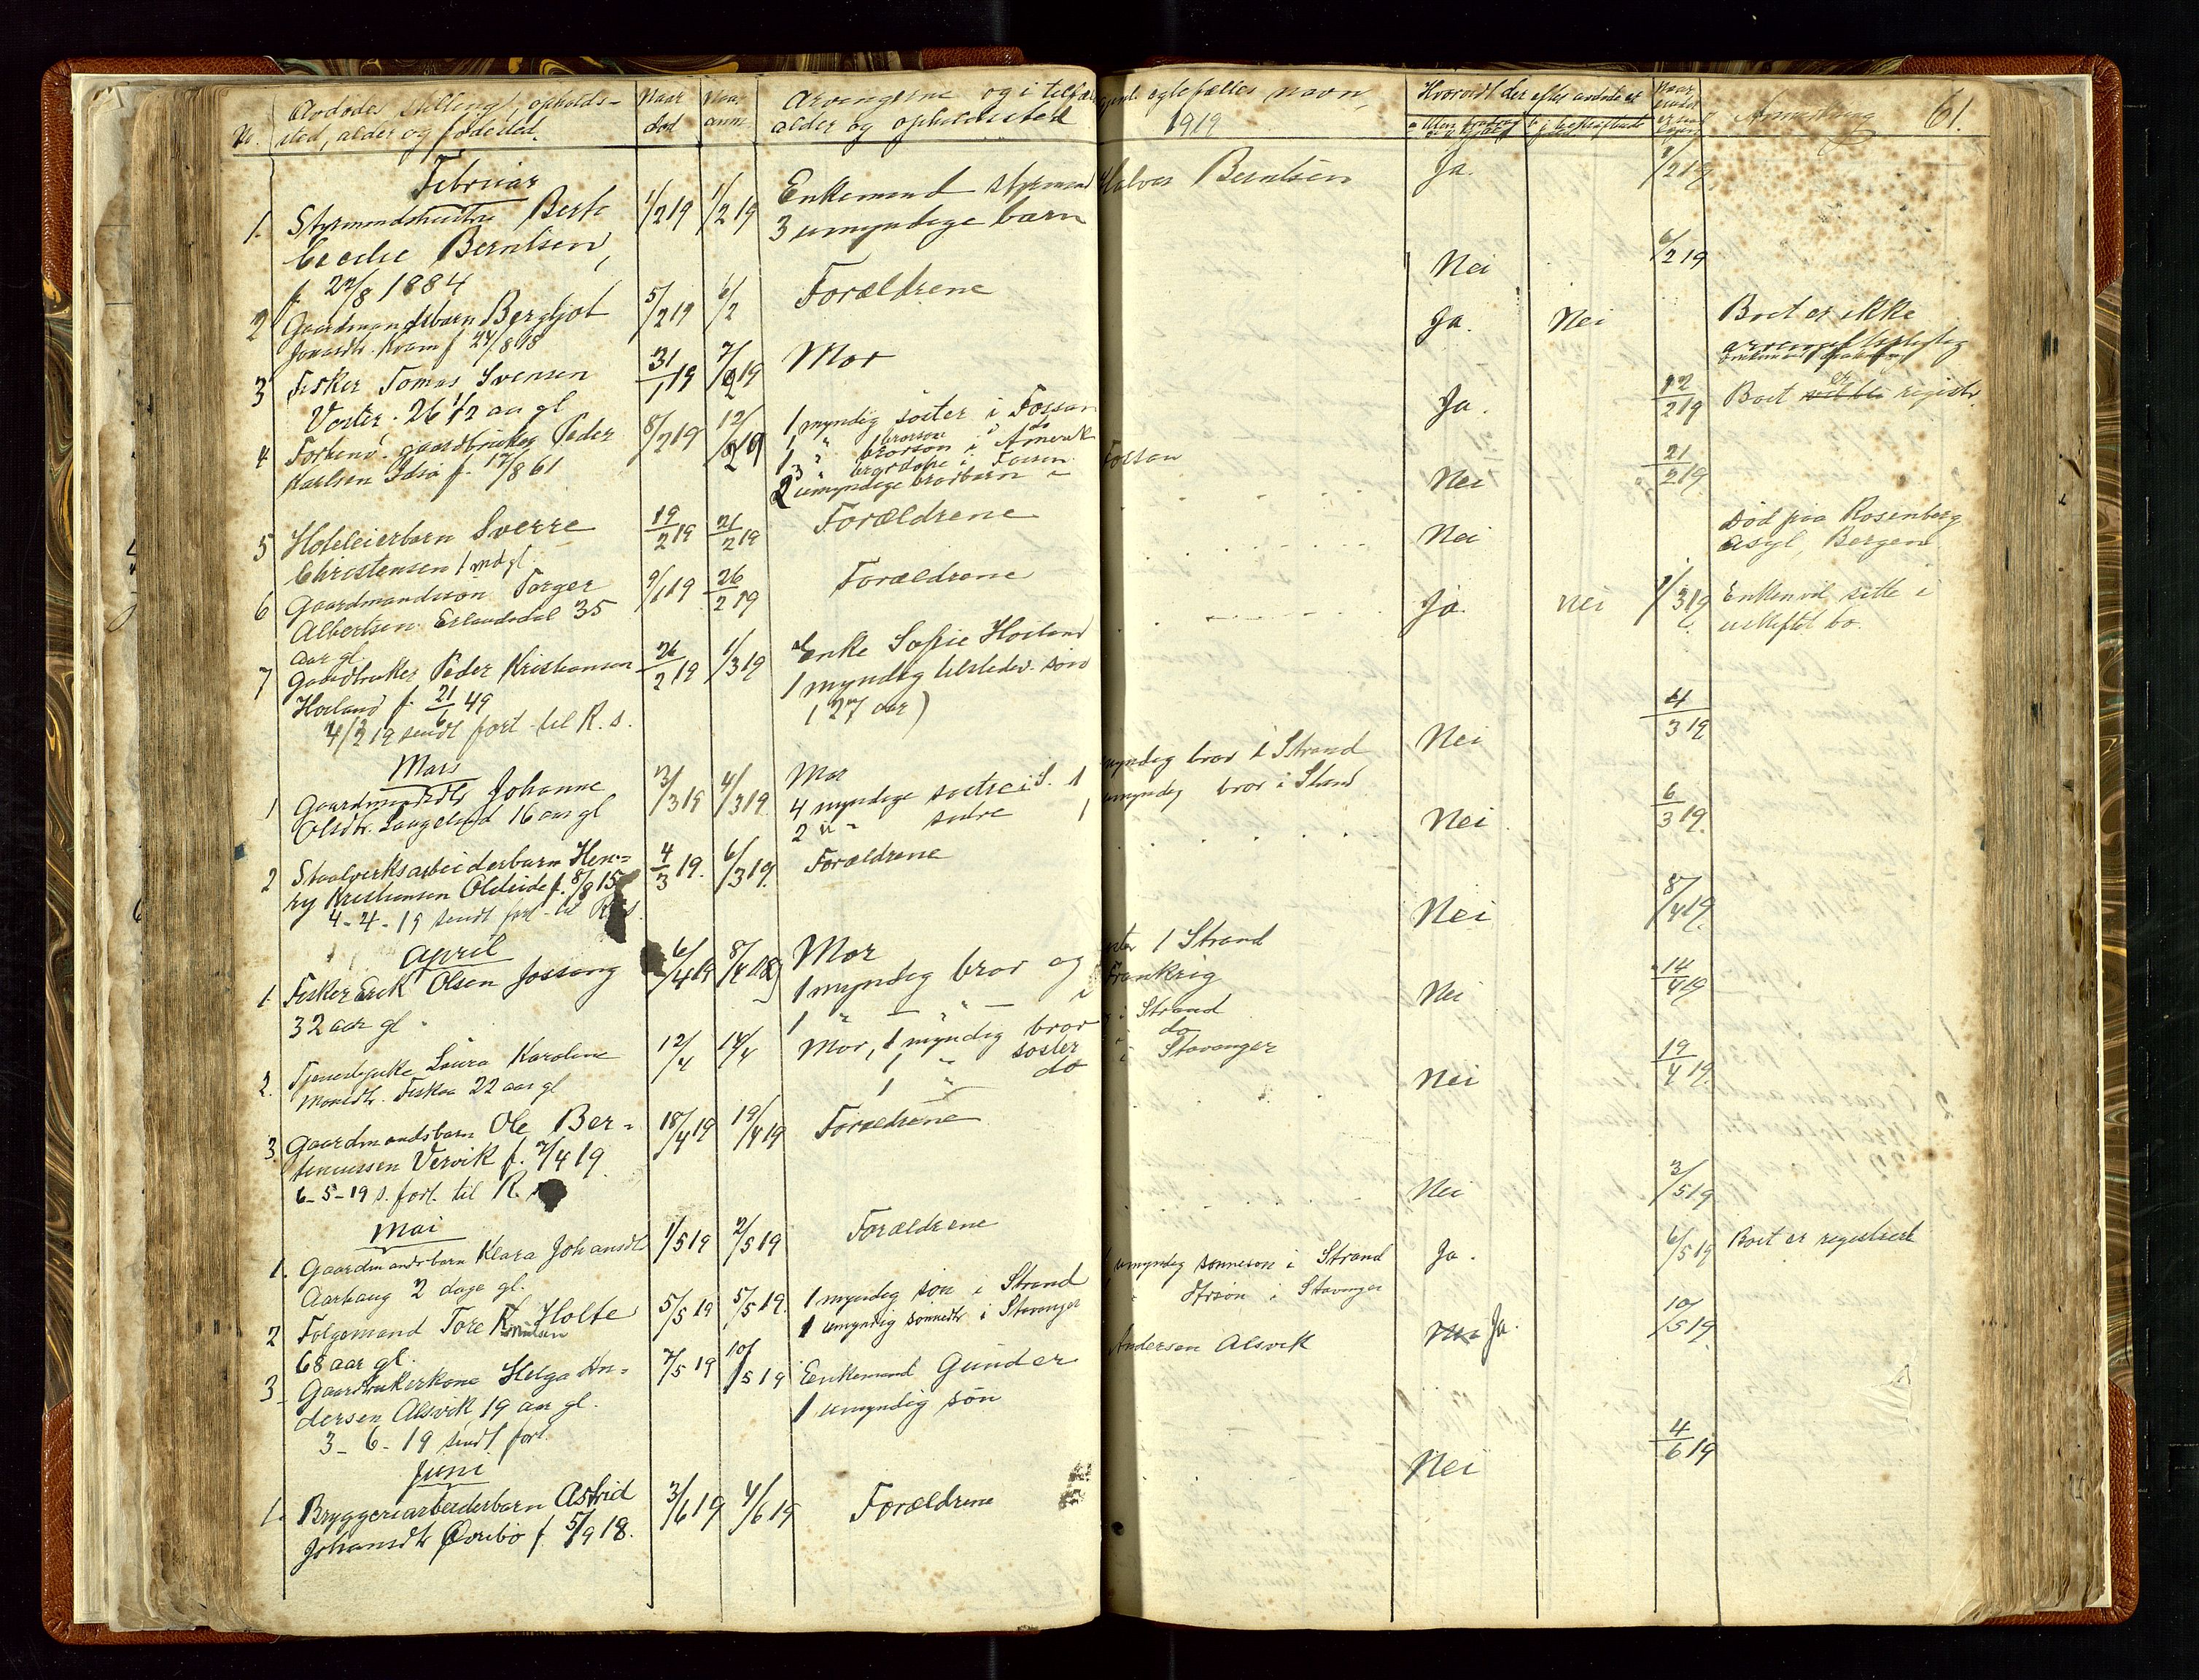 No. Avdødes stilling, opholds-
sted, alder og fødested.
Naar død
Naar anm.
Arvingerne og i tilfælde gjenl. egtefælles navn,
alder og opholdssted 1919
Hvorvidt der efter avdøde er
Anmerkning 61.
Februar
1. Berte 1/2 19 1/2 19 Enkemand styrmand Halvor Berntsen Ja.
Cecilie Berntsen, 3 umyndige barn
f. 22/8 1884
2 Gaardmandsbarn Bergljot 5/2 19 6/2 Forældrene Nei 6/2 19
Jonasdtr. Kvam f 24/8 18
3 Fisker Tomas Svensen 31/1 19 7/2 19 Mor Ja. Nei Boet er ikke
Voster. 26 1/2 aar gl
4 gaardbruker Peder 8/2 19 12/2 19 1 myndig søster i Fossan Ja. 12/2 19 Boet er registr.
Karlsen Idsø f. 17/8 61 1 " brorson i Amerik
2 umyndige brorbarn " Fossan
5 Hoteleierbarn Sverre 19/2 19 21/2 19 Forældrene Nei 21/2 19
Christensen 1 md gl.
6 Gaardmandssøn Torger 9/1 19 26/2 19 Forældrene Nei Død paa Rosenberg
Albertsen Erlandsdal 35 asyl, Bergen
aar gl.
7 Gaardbruker Peder Kristiansen 26/2 19 1/3 19 Enke Sofie Høiland Ja. Nei 1/3 19 Enken vil sitte i
Høiland f. 21/6 49 1 myndig tilstedev. søn uskiftet bo.
4/3 19 sendt fort. til R. s. ( 27 aar)
Mars
1 Johanne 3/3 19 4/3 19 Mor myndig bror i Strand Nei 4/3 19
Olsdtr. Laugeland 16 aar gl 4 myndige søstre i S. 1 umyndig bror i Strand
2 u " søstre 1
2 Staalverksarbeiderbarn Hen- 4/3 19. 6/3 19. Forældrene Nei 6/3 19.
ry Kristiansen f. 8/8 15
4-4-19 sendt fort. til R. s.
April
1. Fisker Erik Olsen Jøssang 6/4 19 8/4 19 Mor Nei 8/4 19.
32 aar gl. 1 myndig bror og 1 Strand
1 " — " — i Frankrig
2. Tjenestepike Laura Karoline 12/4 14/4 Mor, 1 myndig bror i Strand Nei 14/4 19
Fiskaa 22 aar gl 1 " søster " do
1 " do i Stavanger
3. Gaardmandsbarn Ole Ber- 18/4 19 19/4 19 Forældrene Nei 19/4 19.
Vervik f. 7/4 19.
6-5-19 s. fort. til R.
Mai
1. Gaardmandsbarn Klara Johansdtr 1/5 19 2/5 19 Forældrene Nei 3/5 19
Aarhaug 2 dage gl.
2 Følgemand Tore K. Holte 5/5 19 5/5 19. 1 myndig søn i Strand umyndig sønnesøn i Strand Ja. 6/5 19 Boet er registrert
68 aar gl. 1 umyndig sønnedtr i Stavanger " dtrsøn i Stavanger
3 Gaardbrukerkone Helga An- 7/5 19 10/5 19 Enkemand Gunder Andersen Alsvik Ja. 10/5 19.
dersen Alsvik 19 aar gl. 1 umyndig søn
3-6-19 sendt fort.
Juni
1. Bryggeriarbeiderbarn Astrid 3/6 19 4/6 19 Forældrene Nei 4/6 19
Johansdtr f. 5/9 18.